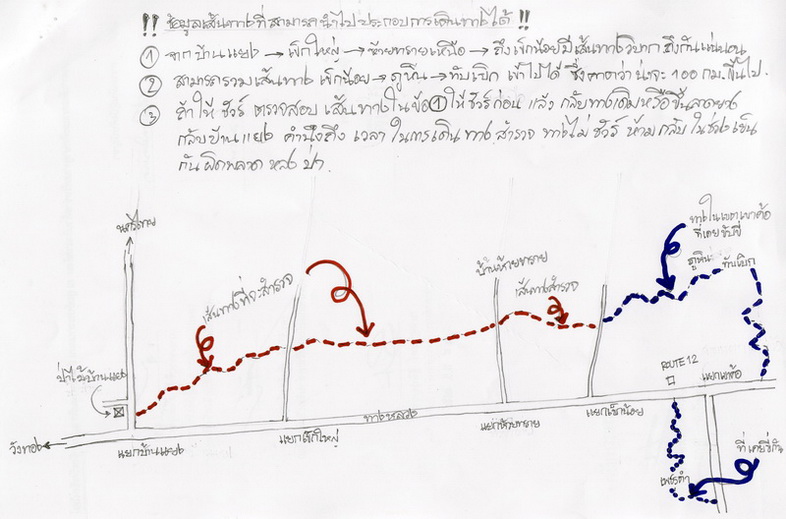 !! ข้อมูลเส้นทางที่สามารถนำไปประกอบการเดินทางได้ !!
① จากบ้านแยง → เข็กใหญ่ → ห้วยทรายเหนือ → ถึงเข็กน้อยมีเส้นทางวิบาก ถึงกันแน่นอน
② สามารถรวมเส้นทาง เข็กน้อย → ภูหิน → ทับเบิก เข้าไปได้ ซึ่งคาดว่าน่าจะ 100 กม. ขึ้นไป.
③ ถ้าให้ ชัวร์ ตรวจสอบ เส้นทางในข้อ ① ให้ชัวร์ก่อน แล้ว กลับทางเดิมหรือขึ้นลาดยาง
กลับบ้านแยง คำนึงถึง เวลา ในการเดินทาง สำรวจ ทางไม่ ชัวร์ ห้ามกลับ ในช่วงเย็น
กันผิดพลาด หลงป่า.
นครไทย
ทางในเขตเขาค้อ
ที่เคยขับขี่
ภูหิน ทับเบิก
บ้านห้วยทราย
เส้นทางที่จะสำรวจ
เส้นทางสำรวจ
ป่าไม้บ้านแยง
ROUTE 12
แยกแค้มป์
ทางหลวง
วังทอง
แยกบ้านแยง
แยกเข็กใหญ่
แยกห้วยทราย
แยกเข็กน้อย
ที่เคยขี่กัน